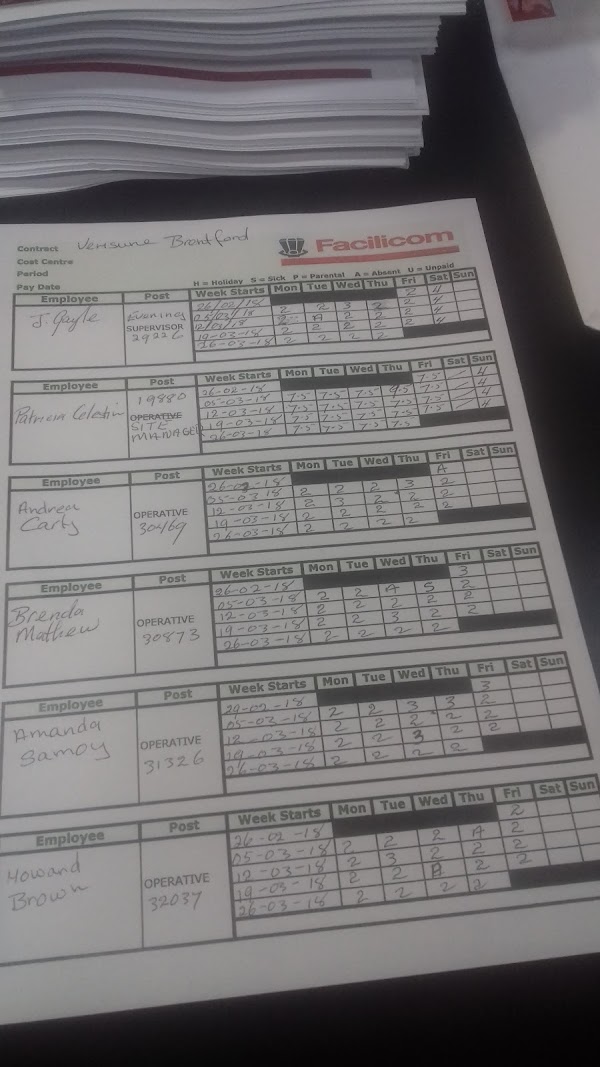 Contract Verisure Brentford
Facilicom
Cost Centre
Period
Pay Date H = Holiday S = Sick P = Parental A = Absent U = Unpaid
Employee Post Week Starts Mon Tue Wed Thu Fri Sat Sun
J. Gayle Evening 26/02/18 2 4
SUPERVISOR 05/03/18 2 2 3 2 2 4
29226 12/03/18 2 A 2 2 2 4
19-03-18 2 2 2 2 2 4
26-03-18 2 2 2 2
Employee Post Week Starts Mon Tue Wed Thu Fri Sat Sun
Patricia Celestin 19880 26-02-18 7.5 4
OPERATIVE 05-03-18 7.5 7.5 7.5 7.5 4
SITE 12-03-18 7.5 7.5 7.5 7.5 7.5 4
MANAGER 19-03-18 7.5 7.5 7.5 7.5 7.5 4
26-03-18 7.5 7.5 7.5 7.5
Employee Post Week Starts Mon Tue Wed Thu Fri Sat Sun
Andrea 26-02-18 A
Carty OPERATIVE 05-03-18 2 2 2 3 2
30469 12-03-18 2 3 2 2 2
19-03-18 2 2 2 2 2
26-03-18 2 2 2 2
Employee Post Week Starts Mon Tue Wed Thu Fri Sat Sun
Brenda 26-02-18 3
Mathew OPERATIVE 05-03-18 2 2 A S 2
30873 12-03-18 2 2 2 2 2
19-03-18 2 2 3 2 2
26-03-18 2 2 2 2
Employee Post Week Starts Mon Tue Wed Thu Fri Sat Sun
Amanda 29-02-18 3
Samoy OPERATIVE 05-02-18 2 2 3 3 2
31326 12-03-18 2 2 2 2 2
19-03-18 2 2 3 2 2
26-03-18 2 2 2 2
Employee Post Week Starts Mon Tue Wed Thu Fri Sat Sun
Howard 26-02-18 2
Brown OPERATIVE 05-03-18 2 2 2 A 2
32037 12-03-18 2 3 2 2 2
19-03-18 2 2 2 2
26-03-18 2 2 2 2